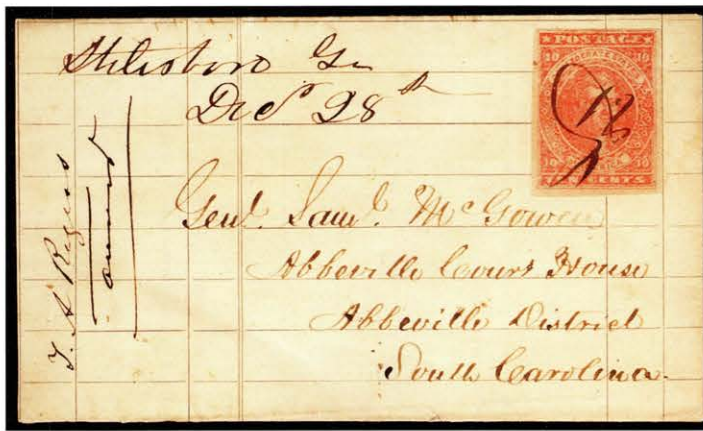 Stilesboro Ga
Dec 28th
POSTAGE
10 10
10 10
TEN CENTS
Genl. Saml. McGowen
Abbeville Court House
Abbeville District
South Carolina.